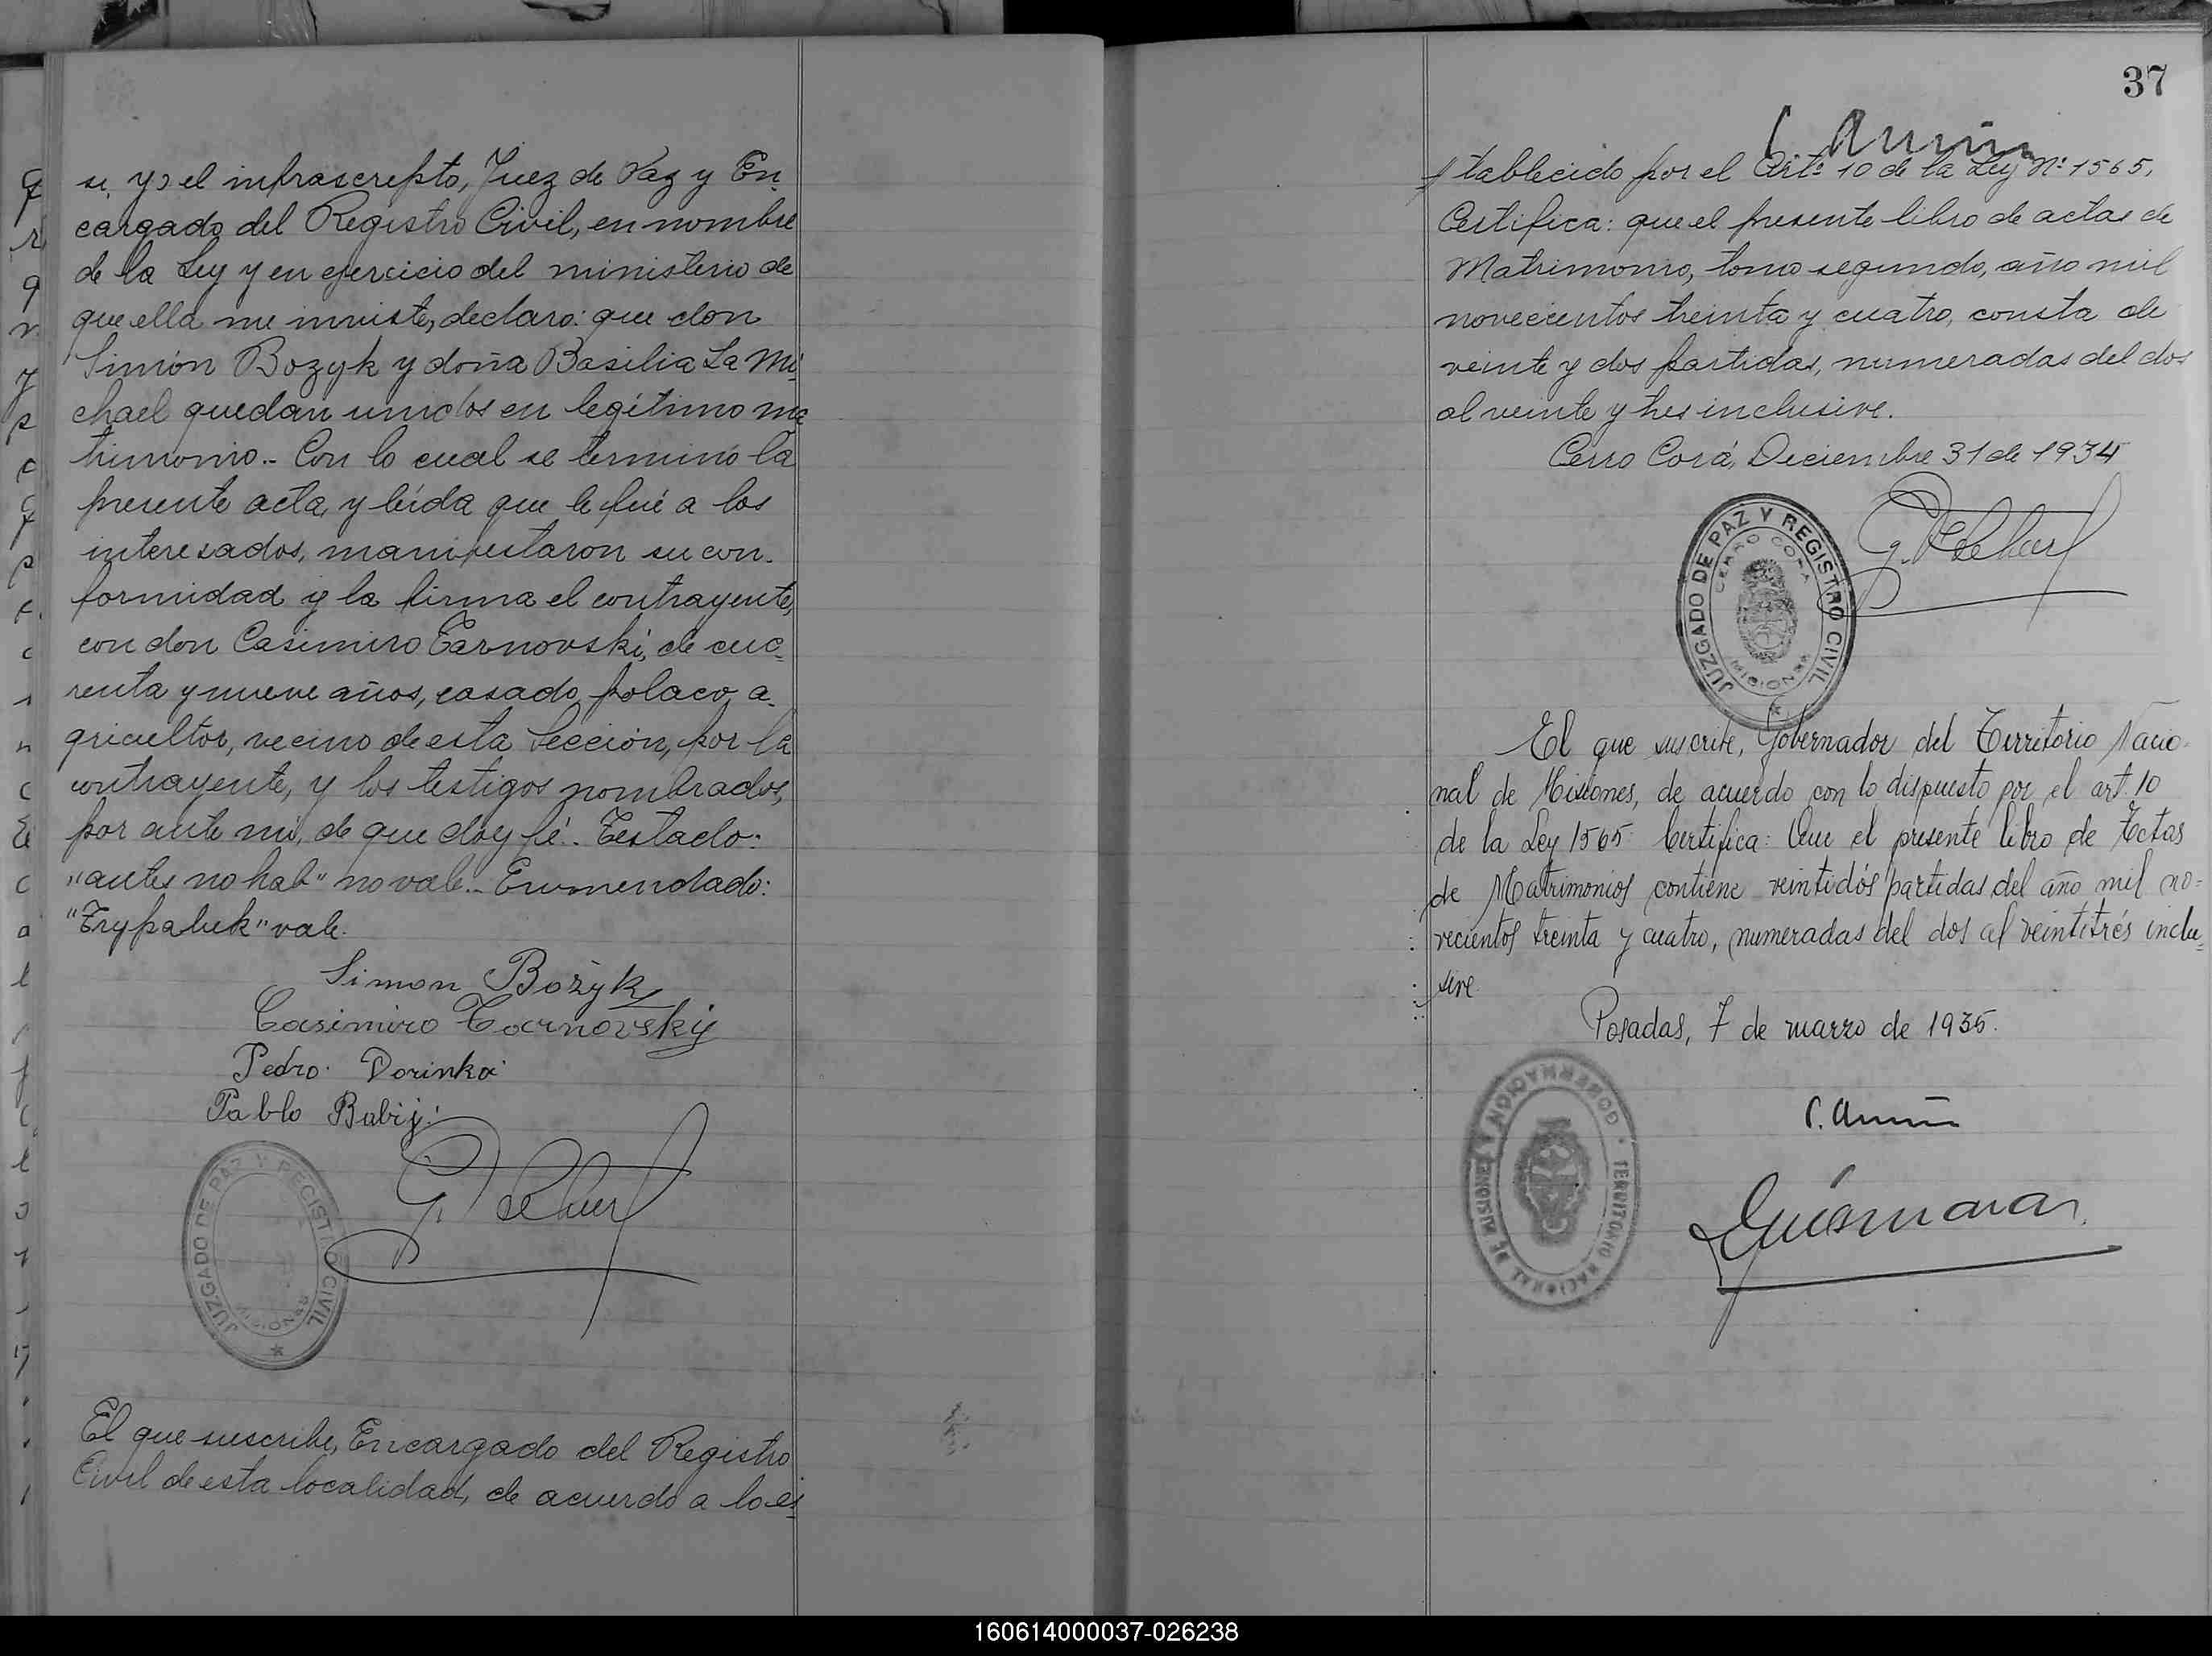 si, yo el infrascripto, Juez de Paz y En-
cargado del Registro Civil, en nombre
de la Ley y en ejercicio del ministerio de
que ella me inviste, declaro: que don
Simón Bozyk y doña Basilia La Mi-
chael quedan unidos en legítimo ma
trimonio.- Con lo cual se terminó la
presente acta, y leída que le fué a los
interesados, manifestaron su con-
formidad y la firma el contrayente,
con don Casimiro Tarnovski, de cua-
renta y nueve años, casado, polaco, a-
gricultor, vecino de esta Sección, por la
contrayente, y los testigos nombrados,
por ante mi, de que doy fé.- Testado:
"antes no hab" no vale.- Enmendado:
"Trypaluk" vale.
Simon Bożyk
Casimiro Tarnovskiy
Pedro Dorinka
Pablo Babij
JUZGADO DE PAZ Y REGISTRO CIVIL
MISIONES
El que suscribe, Encargado del Registro
Civil de esta localidad, de acuerdo a lo es-
37
tablecido por el Artº 10 de la Ley Nº 1565,
Certifica: que el presente libro de actas de
Matrimonio, tomo segundo, año mil
novecientos treinta y cuatro, consta de
veinte y dos partidas, numeradas del dos
al veinte y tres inclusive.
Cerro Corá, Diciembre 31 de 1934
JUZGADO DE PAZ Y REGISTRO CIVIL
CERRO CORA
MISIONES
El que suscribe, Gobernador del Territorio Nacio-
nal de Misiones, de acuerdo con lo dispuesto por el art. 10
de la Ley 1565: Certifica: Que el presente libro de Actas
de Matrimonios contiene veintidós partidas del año mil no-
vecientos treinta y cuatro, numeradas del dos al veintitrés inclu-
sive.
Posadas, 7 de marzo de 1935.
GOBERNACION
TERRITORIO NACIONAL DE MISIONES
160614000037-026238